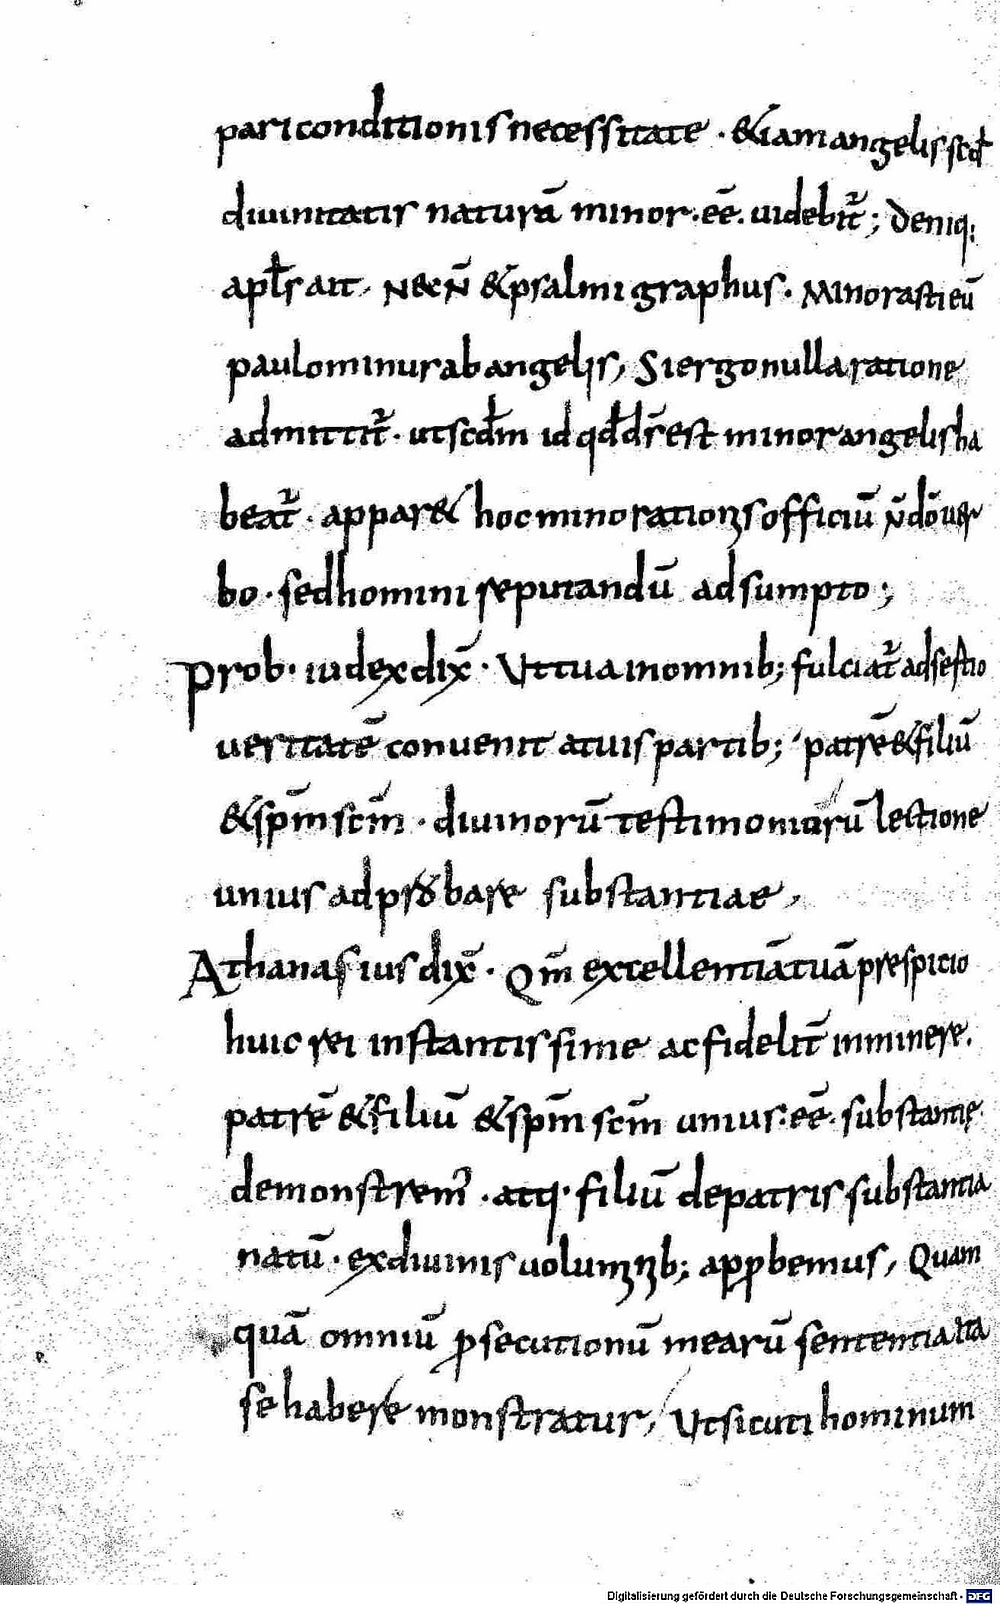 pari conditionis necessitate · & iam angelis scđ
diuinitatis naturā minor · eē · uidebit̃ ; Deniq;
apłs ait, Nec Ñ & psalmigraphus · Minorasti eū
paulo minus ab angelis, Si ergo nulla ratione
admittit̃ · ut scđm id qđ ds̄ est minor angelis ha
beat̃ · appar& hoc minorationis officiū ñ dō uer
bo · sed homini reputandū adsumpto ;
Prob · iudex dix̄ · Ut tua in omnib; fulciat̃ adsertio
ueritatē conuenit a tuis partib; patrē & filiū
& sp̄m sc̄m · diuinorū testimoniorū lectione
unius adprobare substantiae,
Athanasius dix̄ · Qm̄ excellentiā tuā prespicio
huic rei instantissime ac fidelit̄ inminere.
patrē & filiū & sp̄m sc̄m unius · eē · substantię
demonstrem᾿ · atq· filiū de patris substantia
natū · ex diuinis uoluminib; appbemus, Quam
quā omniū ꝓsecutionū mearū sententia ita
se habere monstratur, Ut sicuti hominum
Digitalisierung gefördert durch die Deutsche Forschungsgemeinschaft - DFG